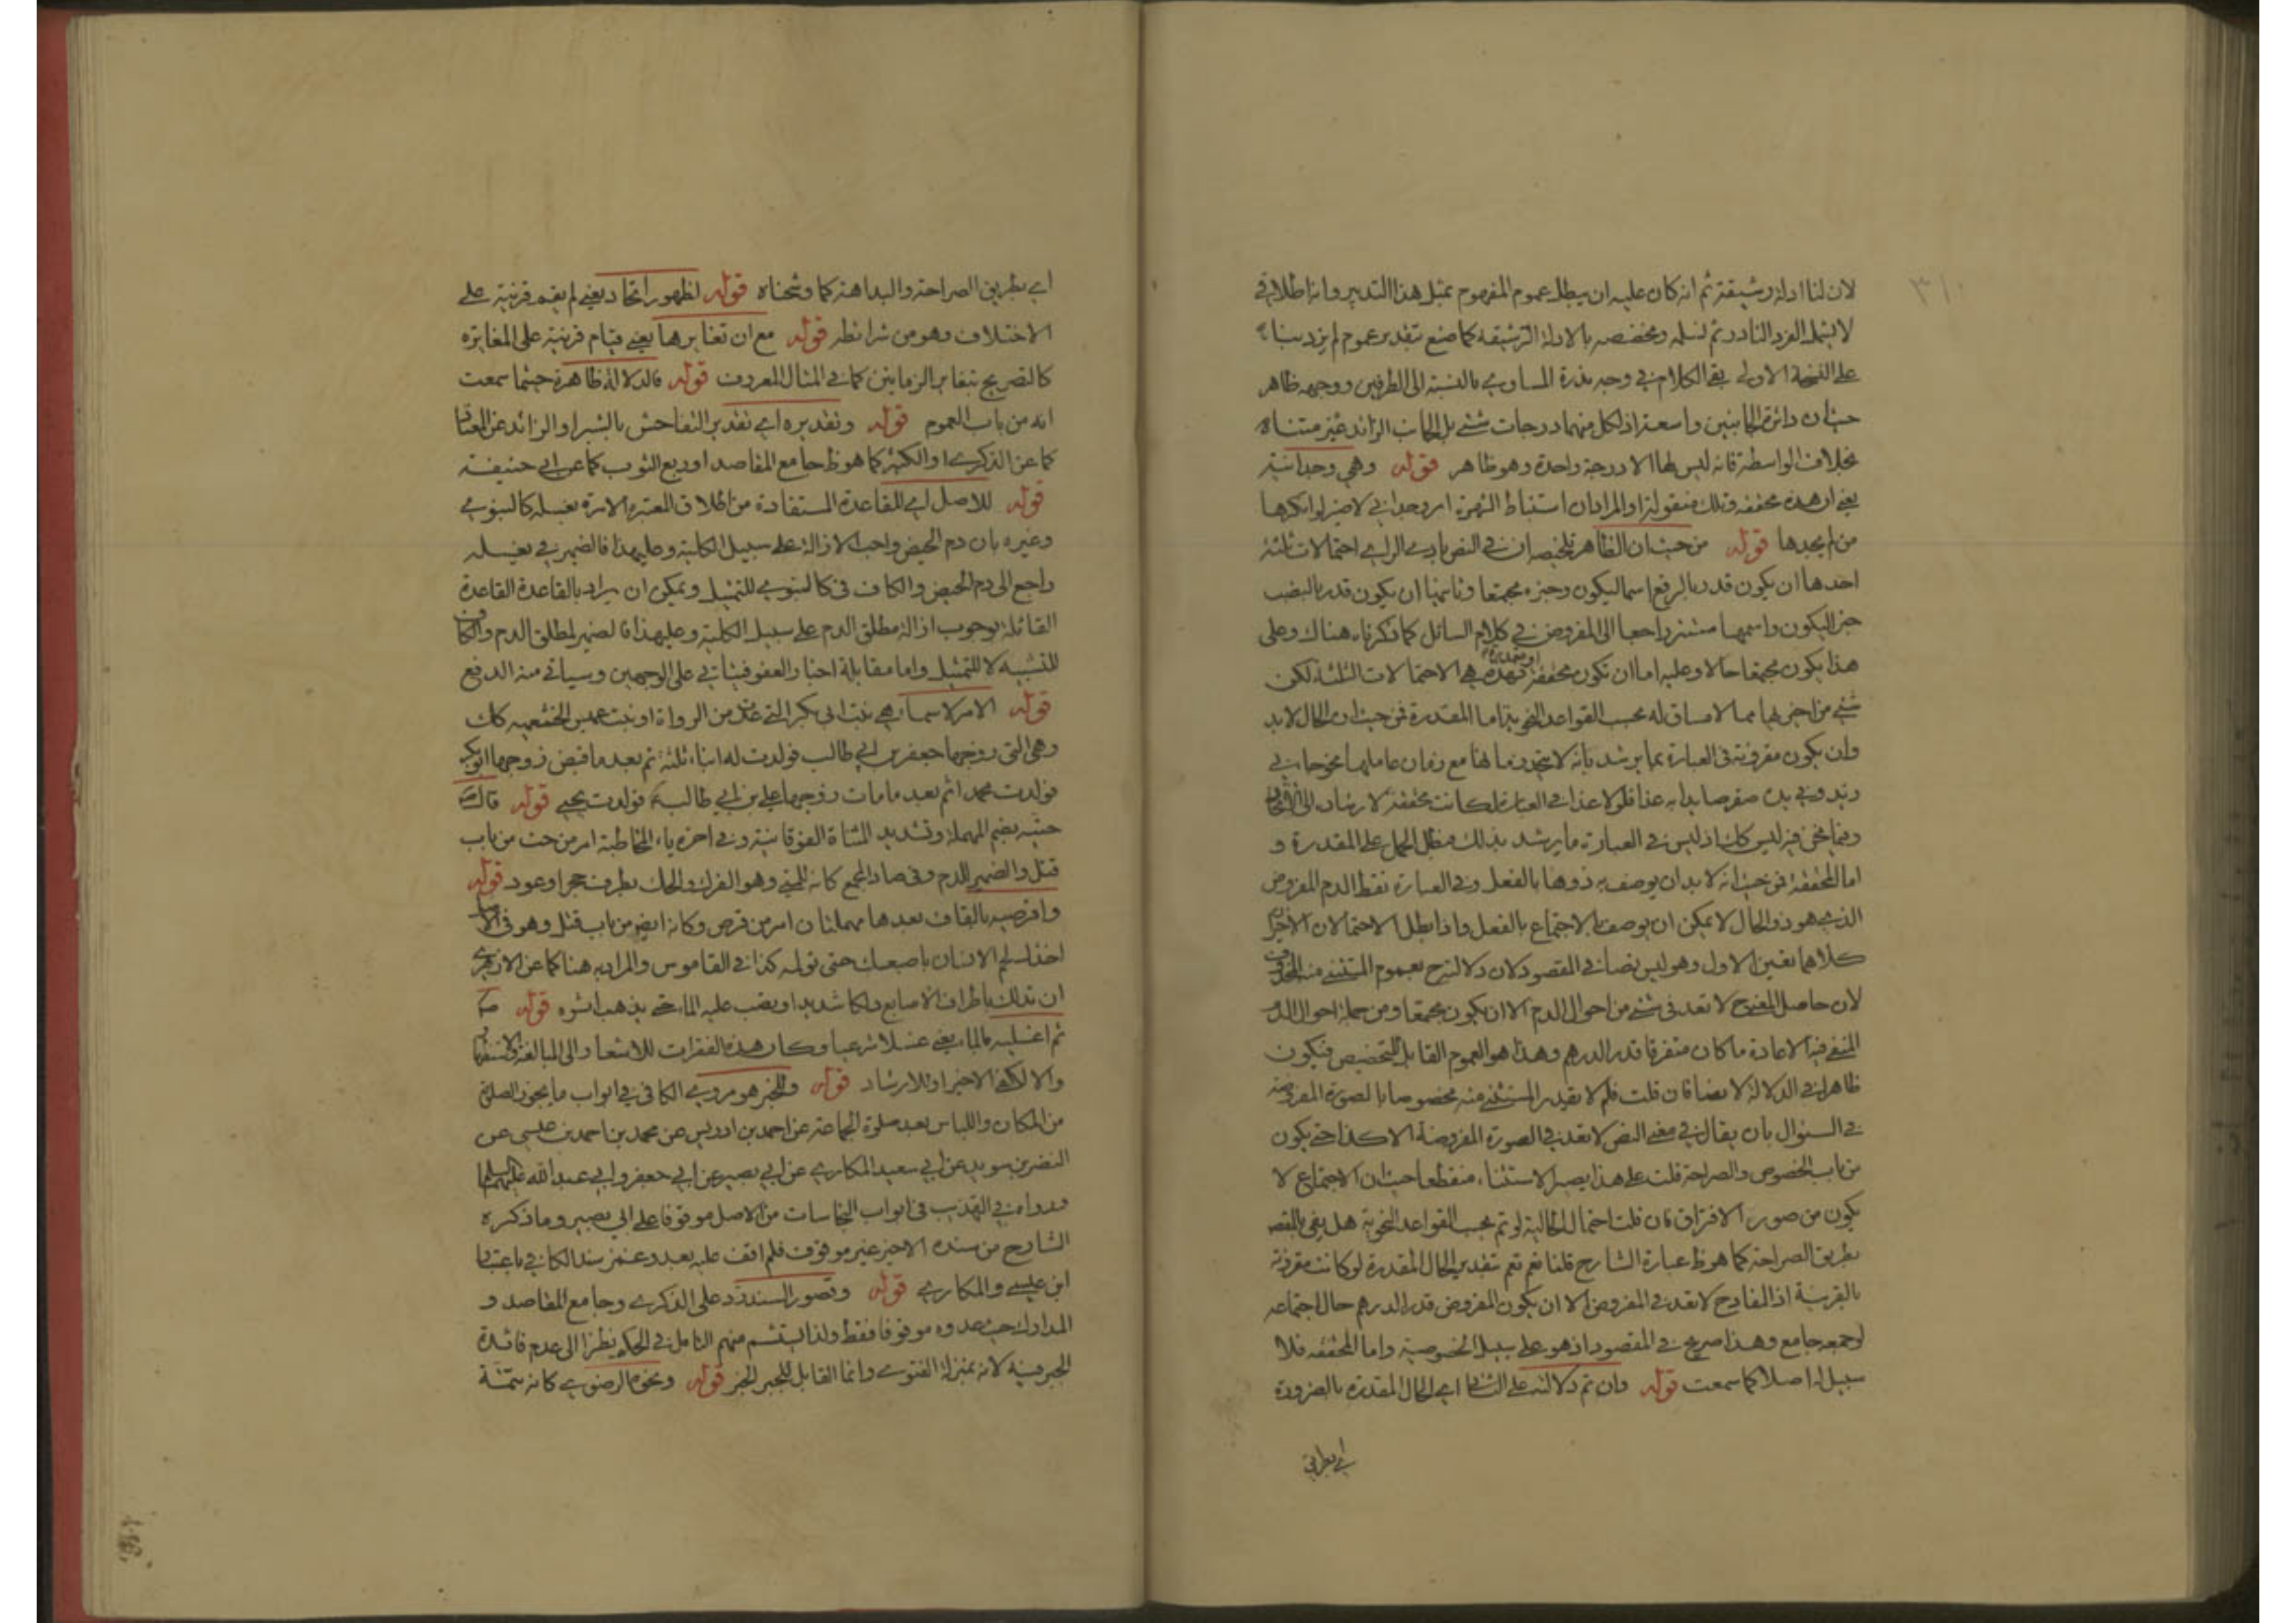 لان لنا ادلة رشيقة ثم انه كان عليه ان يبطل عموم المفهوم بمثل هذا التدبير وانه اطلاقي
لا يشمل الفرد النادر ثم نسلمه ونخصصه بالادلة الرشيقة كما صنع بتقدير عموم لم يزد بناء
على النسخة الاولى بقي الكلام في وجه ندرة المساوي بالنسبة الى الطرفين ووجهه ظاهر
حيث ان دائرة الجانبين واسعة اذ لكل منهما درجات شتى بل الجانب الزائد غير متناه
بخلاف الواسطة فانه ليس لها الا درجة واحدة وهو ظاهر قوله وهي وجدانية
يعني ان هذه محققة وتلك منقولة او المراد ان استنباط الشهرة امر وجداني لا ضير لو انكرها
من لم يجدها قوله من حيث ان الظاهر تلخيصه ان في النص بادي الراي احتمالات ثلثة
احدها ان يكون قدر بالرفع اسما ليكون وخبره مجتمعا وثانيها ان يكون قدر بالنصب
خبر اليكون واسمها مستتر راجعا الى المفروض في كلام السائل كما ذكرناه هناك وعلى
هذا يكون مجتمعا حالا وعليه اما ان تكون محققة او مقدرة فهذه هي الاحتمالات الثلثة لكن
شيء من اخيريها مما لا مساق له بحسب القواعد النحوية اما المقدرة فمن حيث ان الحال لا بد
وان يكون مقرونة في العبارة بما يرشد بانه لا يتحد زمانها مع زمان عاملها نحو جاءني
زيد وفي يده صقر صايدا به غدا فلولا غدا في العبارة لكانت محققة لارشاد الى الاتحاد
وفيما نحن فيه ليس كك اذ ليس في العبارة ما يرشد بذلك فبطل الحمل على المقدرة و
اما المحققة فمن حيث انه لا بد ان يوصف به ذوها بالفعل وفي العبارة نقط الدم المفروض
الذي هو ذو الحال لا يمكن ان يوصف بالاجتماع بالفعل واذا بطل الاحتمالان الاخيران
كلاهما تعين الاول وهو ليس نصا في المقصود لان دلالته ح بعموم المستثنى منه المحذوف
لان حاصل المعنى ح لا تعد في شيء من احوال الدم الا ان يكون مجتمعا ومن جملة احوال الدم
المنفي فيه الاعادة ما كان متفرقا قدر الدرهم وهذا هو العموم القابل للتخصيص فيكون
ظاهرا في الدلالة لا نصا فان قلت فلم لا يقدر المستثنى منه مخصوصا بالصورة المفروضة
في السئوال بان يقال في معنى النص لا تعد في الصورة المفروضة الا كذا حتى يكون
من باب الخصوص والصراحة قلت على هذا يصير الاستثناء منقطعا حيث ان الاجتماع لا
يكون من صور الافتراق فان قلت احتمال الحالية لو تم بحسب القواعد النحوية هل يفي بالمقصد
بطريق الصراحة كما هو ظ عبارة الشارح قلنا نعم تعم بتقدير الحال المقدرة لو كانت مقرونة
بالقرينة اذ المفاد ح لا تعد في المفروض الا ان يكون المفروض قدر الدرهم حال اجتماعه
لو جمعه جامع وهذا صريح في المقصود اذ هو على سبيل الخصوصية واما المحققة فلا
سبيل له اصلا كما سمعت قوله وان تم دلالته على الثاني اي الحال المقدرة بالضرورة
اي بطريق
اي بطريق الصراحة والبداهة كما وشحناه قوله لظهور اتحاد يعني لم يقم قرينة على
الاختلاف وهو من شرائطه قوله مع ان تغايرها يعني قيام قرينة على المغايرة
كالتصريح بتغاير الزمانين كما في المثال المعروف قوله فالدلالة ظاهرة حيثما سمعت
انه من باب العموم قوله وتقديره اي تقدير التفاحش بالشبر او الزائد عن المعتاد
كما عن الذكرى او الكثرة كما هو ظ جامع المقاصد او ربع الثوب كما عن ابي حنيفة
قوله للاصل اي القاعدة المستفادة من اطلاق المعتبرة الامرة بغسله كالنبوي
وغيره بان دم الحيض واجب الازالة على سبيل الكلية وعليهذا فالضمير في بغسله
راجع الى دم الحيض والكاف في كالنبوي للتمثيل ويمكن ان يراد بالقاعدة القاعدة
القائلة بوجوب ازالة مطلق الدم على سبيل الكلية وعليهذا فالضمير لمطلق الدم والكاف
للتشبيه لا للتمثيل واما مقابلة اخبار العفو فيتاتي على الوجهين وسياتي منه الدفع
قوله الامر لاسماء هي بنت ابي بكر التي عدت من الرواة او بنت عميس الخثعميه كك
وهي التي زوجها جعفر بن ابي طالب فولدت له ابناء ثلثة ثم بعد ما قبض زوجها ابو بكر
فولدت محمدا ثم بعد ما مات زوجها علي بن ابي طالب فولدت يحيى قوله قال ص
حتيه بضم المهملة وتشديد المثناة الفوقانية وفي اخره ياء المخاطبة امر من حت من باب
قتل والضمير للدم وفي صاد المجمع كانه المني وهو الفرك والحك بطرف حجر او عود قوله
واقرصيه بالقاف بعدها مهملتان امر من قرص وكانه ايضا من باب قتل وهو في الاصل
اخذك لحم الانسان باصبعك حتى تولمه كذا في القاموس والمراد به هنا كما عن الازهري
ان تدلك باطراف الاصابع دلكا شديدا ويصب عليه الماء حتى يذهب اثره قوله ص
ثم اغسليه بالماء يعني غسلا شرعيا وكان هذه الفقرات للاشعار الى المبالغة والاستقصاء
والا لاكتفى الاخير او للارشاد قوله والخبر هو مروي الكافي في ابواب ما يجوز الصلوة
من المكان واللباس بعد صلوة الجماعة عن احمد بن ادريس عن محمد بن احمد بن عيسى عن
النضر بن سويد عن ابي سعيد المكاري عن ابي بصير عن ابي جعفر وابي عبد الله عليهما السلام
ورواه في التهذيب في ابواب النجاسات من الاصل موقوفا على ابي بصير وما ذكره
الشارح من سنده الاخير غير موقوف فلم اقف عليه بعد وغمز سند الكافي باعتبار
ابن عيسى والمكاري قوله وقصور السند رد على الذكرى وجامع المقاصد و
المدارك حيث عدوه موقوفا فقط ولذا يستشم منهم التامل في الحكم نظرا الى عدم فائدة
الجبر فيه لانه بمنزلة الفتوى وانما القابل للجبر الخبر قوله ونحوه الرضوي كانه تتمة